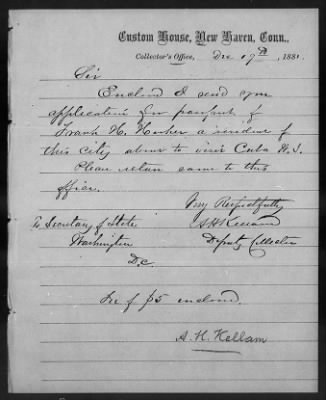 Custom House, New Haven, Conn.,
Collector's Office, Dec 19th, 1881.
Sir
Enclosed I send you
application for passport of
Frank H. a resident of
this city about to visit Cuba W.I.
Please return same to this
office.
Very Respectfully
To Secretary of State
A H Kellam
Washington
Deputy Collector
D.C.
Fee of $5 enclosed.
A. H. Kellam